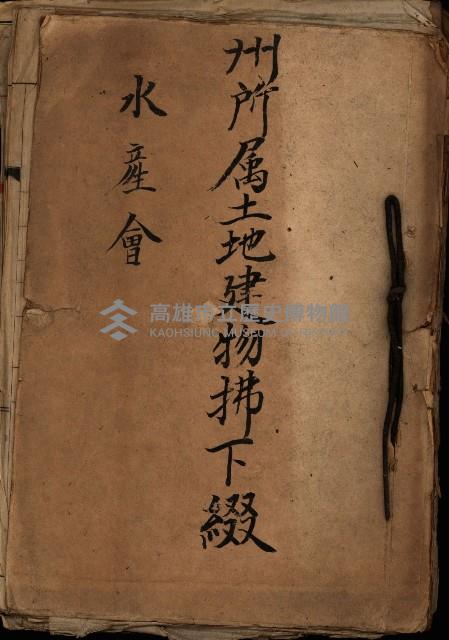 州所属土地建物拂下綴
水產會
高雄市立歷史博物館
KAOHSIUNG MUSEUM OF HISTORY